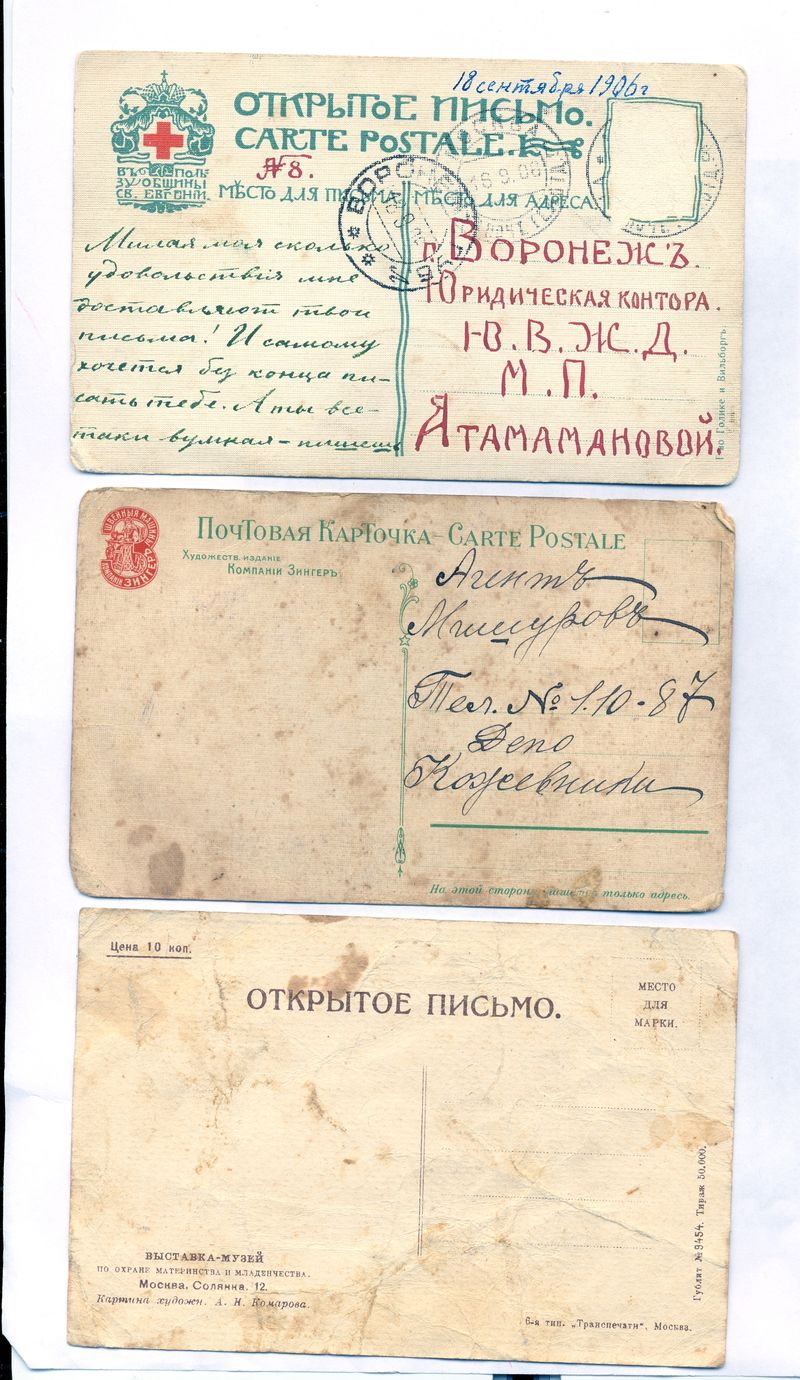 18 сентября 1906 г
ОТКРЫТОЕ ПИСЬМО.
CARTE POSTALE.
ВЪ ПОЛЬ
ЗУ ОБЩИНЫ
СВ. ЕВГЕНІИ.
№8.
МѢСТО ДЛЯ ПИСЬМА
МѢСТО ДЛЯ АДРЕСА
ВОРОНЕЖ
Милая моя сколько
удовольствія мне
доставляют твои
письма! И самому
хочется без конца пи-
сать тебе. А ты все-
таки вумная - пишешь
г. ВОРОНЕЖЪ.
ЮРИДИЧЕСКАЯ КОНТОРА.
Ю. В. Ж. Д.
М. П.
АТАМАМАНОВОЙ.
Т-во Голике и Вильборгъ
ШВЕЙНЫЯ МАШИНЫ
КОМПАНІИ ЗИНГЕРЪ
ПОЧТОВАЯ КАРТОЧКА – CARTE POSTALE
ХУДОЖЕСТВ. ИЗДАНІЕ
КОМПАНІИ ЗИНГЕРЪ
Агентъ
Мишуровъ
Тел. № 1.10-87
Депо
Кожевники
На этой сторонѣ пишется только адресъ.
Цена 10 коп.
ОТКРЫТОЕ ПИСЬМО.
МЕСТО
ДЛЯ
МАРКИ.
ВЫСТАВКА-МУЗЕЙ
ПО ОХРАНЕ МАТЕРИНСТВА И МЛАДЕНЧЕСТВА.
Москва, Солянка, 12.
Картина художн. А. Н. Комарова.
Гублит № 9454. Тираж 50.000.
6-я тип. „Транспечати", Москва.